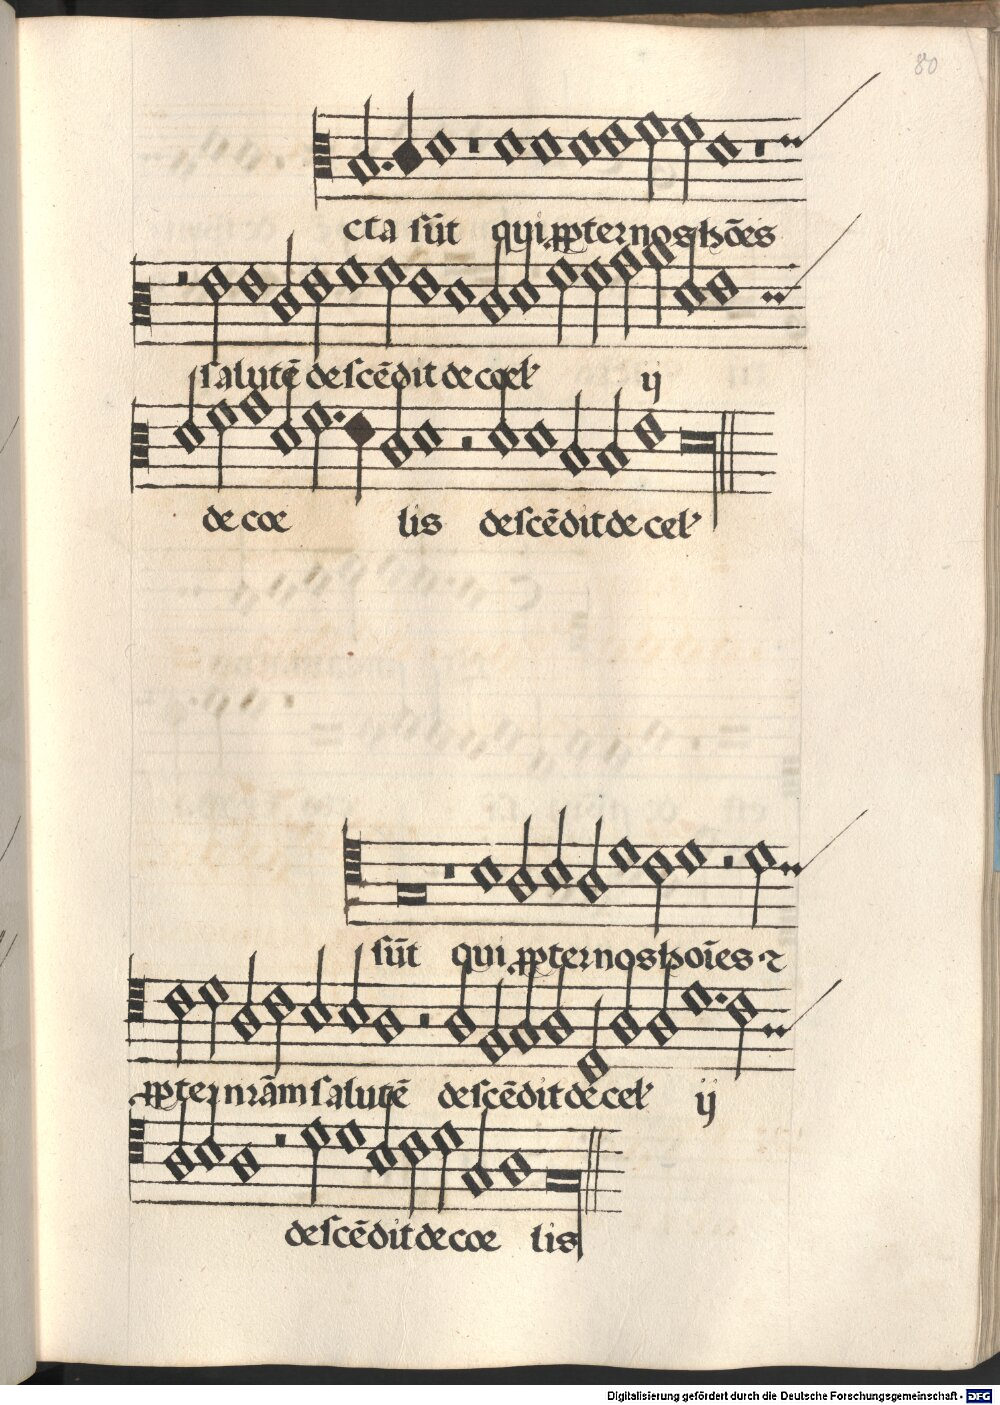 80
cta sūt qui ꝓpter nos hōes
salutē descēdit de coelꝭ ij
de coe lis descēdit de celꝭ
sūt qui ꝓpter nos hoīes ⁊
ꝓpter nrām salutē descēdit de celꝭ ij
descēdit de coe lis
Digitalisierung gefördert durch die Deutsche Forschungsgemeinschaft - DFG